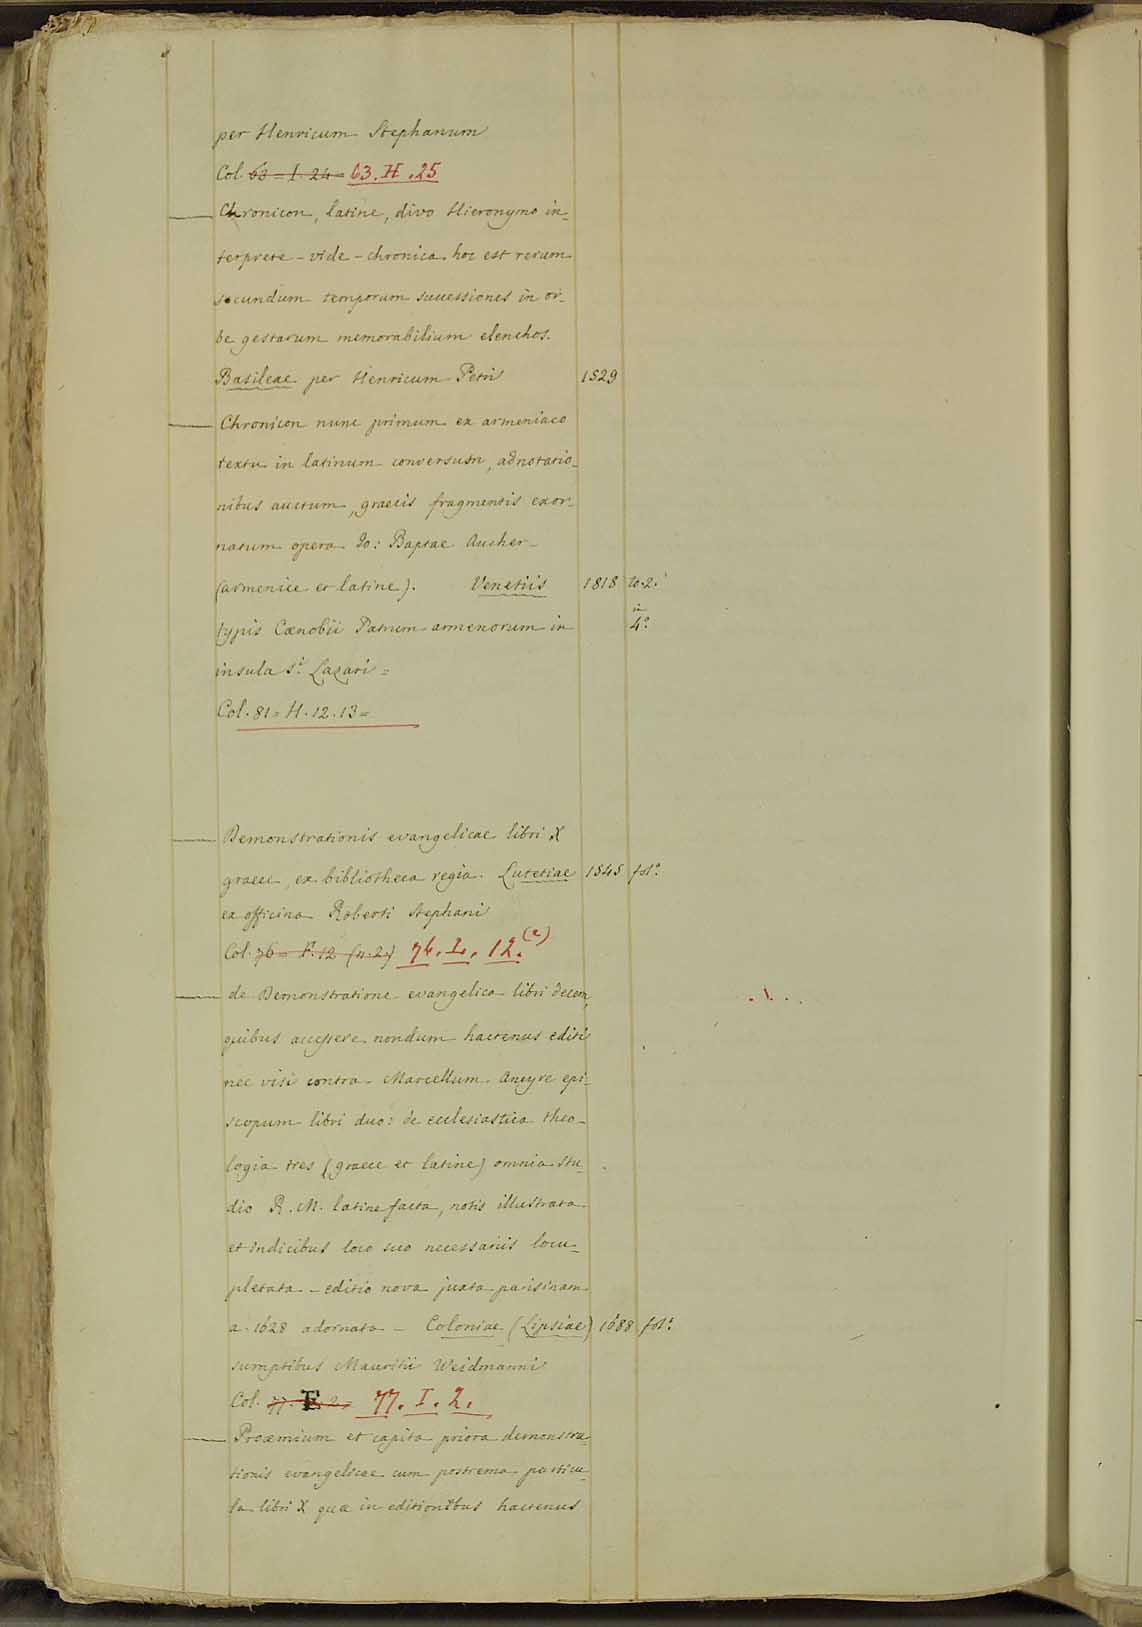 per Henricum Stephanum
Col. 63 = I. 24 = 63. H. 25
Chronicon, latine, divo Hieronymo in-
terprete - vide - chronica hoc est rerum
secundum temporum successiones in or-
be gestarum memorabilium elenchos.
Basileae per Henricum Petri 1529
Chronicon nunc primum ex armeniaco
textu in latinum conversum, adnotatio-
nibus auctum, graecis fragmentis exor-
natum opera Io: Baptae Aucher -
(armenice et latine). Venetiis 1818 to. 2.
in
typis Cœnobii Patrum armenorum in 4.º
insula S.i Lazari =
Col. 81 = H. 12. 13 =
Demonstrationis evangelicae libri X
graece, ex bibliotheca regia. Lutetiae 1545 fol.º
ex officina Roberti Stephani
Col. 76 = F. 12 (n. 2.) 76. I. 12. (2)
de Demonstratione evangelica libri decem,
quibus accessere nondum hactenus editi
nec visi contra Marcellum Ancyre epi-
scopum libri duo: de ecclesiastica theo-
logia tres (graece et latine) omnia stu-
dio R. M. latine facta, notis illustrata
et indicibus loco suo necessariis locu-
pletata - editio nova juxta parisinam
a. 1628 adornata - Coloniae (Lipsiae) 1688 fol.º
sumptibus Mauritii Weidmanni
Col. 77. E. 2 = 77. I. 2.
Proemium et capita priora demonstra-
tionis evangelicae cum postrema particu-
la libri X quae in editionibus hactenus